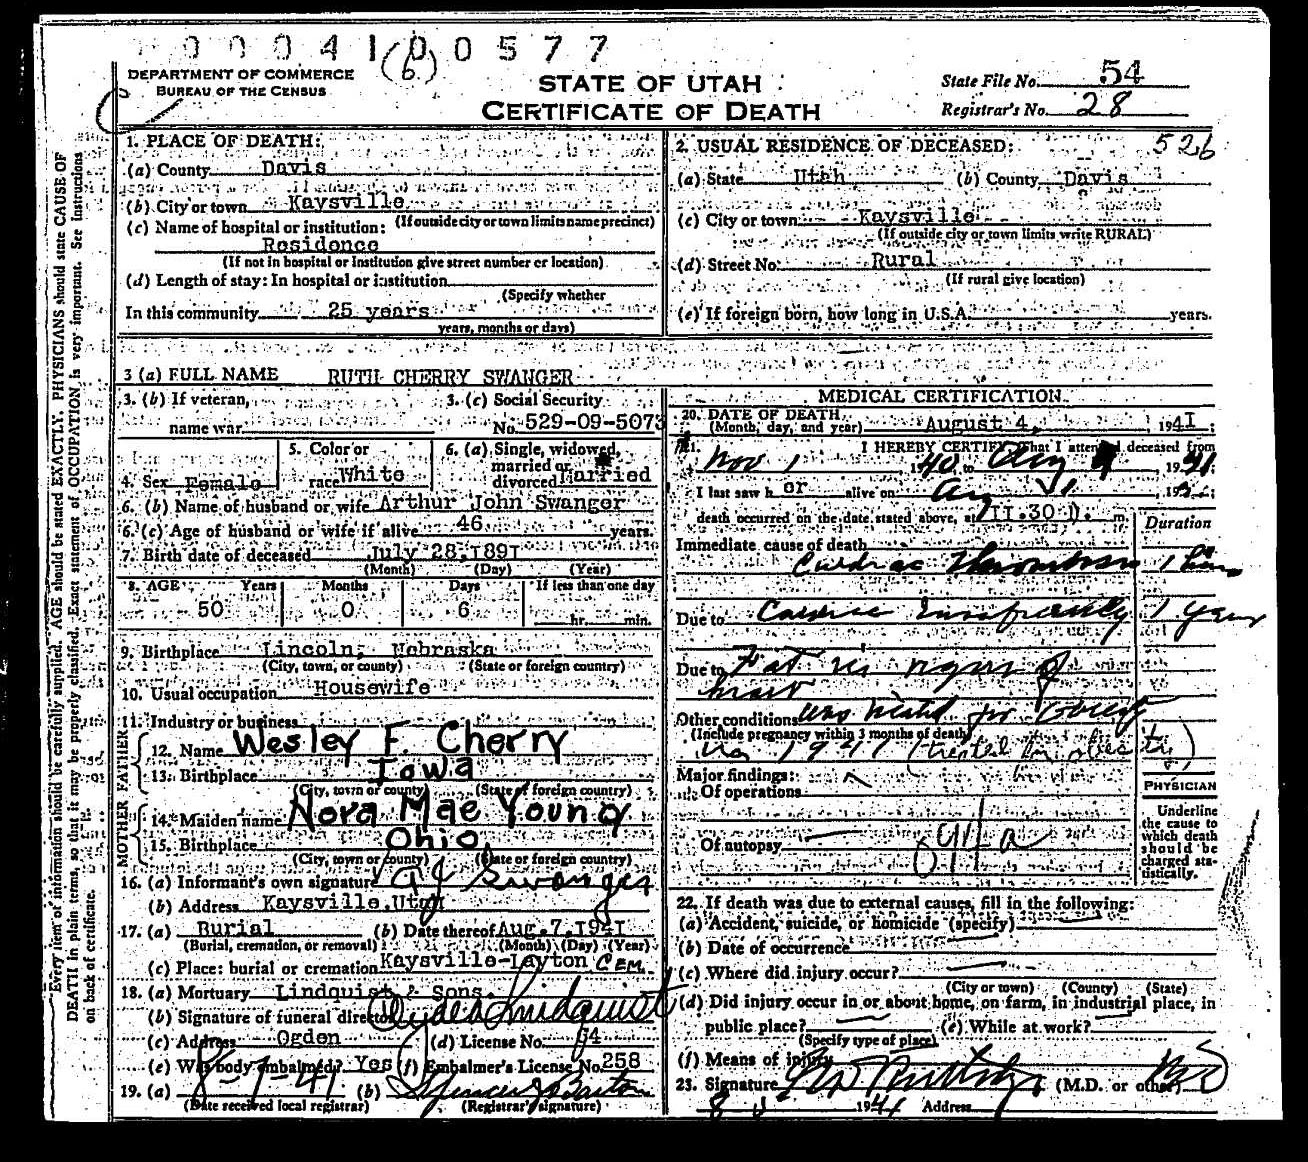 0004100577
(6)
DEPARTMENT OF COMMERCE
BUREAU OF THE CENSUS
STATE OF UTAH
CERTIFICATE OF DEATH
State File No. 54
Registrar's No. 28
526
Every item of information should be carefully supplied. AGE should be stated EXACTLY. PHYSICIANS should state CAUSE OF
DEATH in plain terms, so that it may be properly classified. Exact statement of OCCUPATION is very important. See instructions
on back of certificate.
1. PLACE OF DEATH:
(a) County Davis
(b) City or town Kaysville
(If outside city or town limits name precinct)
(c) Name of hospital or institution:
Residence
(If not in hospital or institution give street number or location)
(d) Length of stay: In hospital or institution
(Specify whether
In this community 25 years
years, months or days)
2. USUAL RESIDENCE OF DECEASED:
(a) State Utah (b) County Davis
(c) City or town Kaysville
(If outside city or town limits write RURAL)
(d) Street No. Rural
(If rural give location)
(e) If foreign born, how long in U.S.A. years.
3 (a) FULL NAME RUTH CHERRY SWANGER
3. (b) If veteran,
name war
3. (c) Social Security
No. 529-09-5073
4. Sex Female
5. Color or
race White
6. (a) Single, widowed,
married or
divorced Married
6. (b) Name of husband or wife Arthur John Swanger
6. (c) Age of husband or wife if alive 46 years.
7. Birth date of deceased July 28, 1891
(Month) (Day) (Year)
8. AGE Years Months Days If less than one day
50 0 6 hr. min.
9. Birthplace Lincoln, Nebraska
(City, town, or county) (State or foreign country)
10. Usual occupation Housewife
11. Industry or business
FATHER
12. Name Wesley F. Cherry
13. Birthplace Iowa
(City, town or county) (State of foreign country)
MOTHER
14. Maiden name Nora Mae Young
15. Birthplace Ohio
(City, town or county) (State or foreign country)
16. (a) Informant's own signature A J Swanger
(b) Address Kaysville, Utah
17. (a) Burial (b) Date thereof Aug. 7, 1941
(Burial, cremation, or removal) (Month) (Day) (Year)
(c) Place: burial or cremation Kaysville-Layton Cem.
18. (a) Mortuary Lindquist & Sons
(b) Signature of funeral director Clyde Lindquist
(c) Address Ogden (d) License No. 94
(e) Was body embalmed? Yes (f) Embalmer's License No. 258
19. (a) 8-7-41 (b) Barton
(Date received local registrar) (Registrar's signature)
MEDICAL CERTIFICATION
20. DATE OF DEATH
(Month, day, and year) August 4, 1941
21. I HEREBY CERTIFY That I attended deceased from
Nov 1 1940 to Aug 4 1941
I last saw her alive on Aug
death occurred on the date stated above, at 11.30 p. m.
Duration
Immediate cause of death
Cardiac Thrombosis 1 hour
Due to Cardiac Insufficiency 1 year
Due to
Other conditions was treated for obesity
(Include pregnancy within 3 months of death)
1941 (treated for obesity)
Major findings:
Of operations
Of autopsy
94a
PHYSICIAN
Underline
the cause to
which death
should be
charged sta-
tistically.
22. If death was due to external causes, fill in the following:
(a) Accident, suicide, or homicide (specify)
(b) Date of occurrence
(c) Where did injury occur?
(City or town) (County) (State)
(d) Did injury occur in or about home, on farm, in industrial place, in
public place? (e) While at work?
(Specify type of place)
(f) Means of injury
23. Signature (M.D. or other) MD
1941 Address